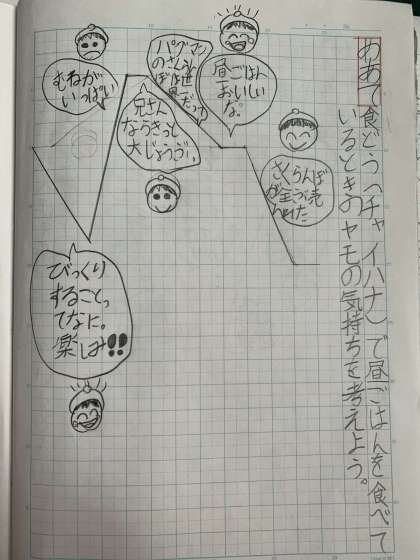 めあて食どう(チャイハナ)で昼ごはんを食べて
いるときのヤモの気持ちを考えよう。
さくらんぼ
が全ぶ売
れた
昼ごはん
おいしい
な。
パグマン
のさくらん
ぼは世
界一だって
兄さん
ならきっと
大じょうぶ。
むねが
いっぱい
びっくり
することっ
てなに。
楽しみ!!